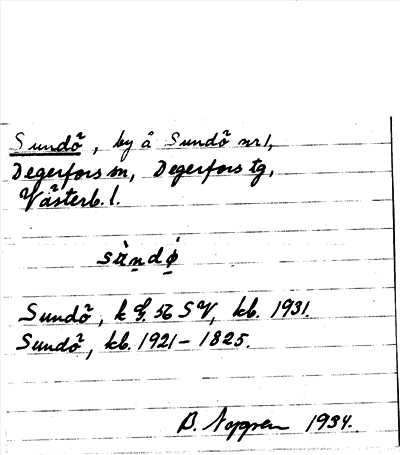 Sundö, by å Sundö nr 1,
Degerfors sn, Degerfors tg,
Västerb. l.
sùndø
Sundö, k G. 56 SV, kb. 1931.
Sundö, kb. 1921–1825.
B. 1934.